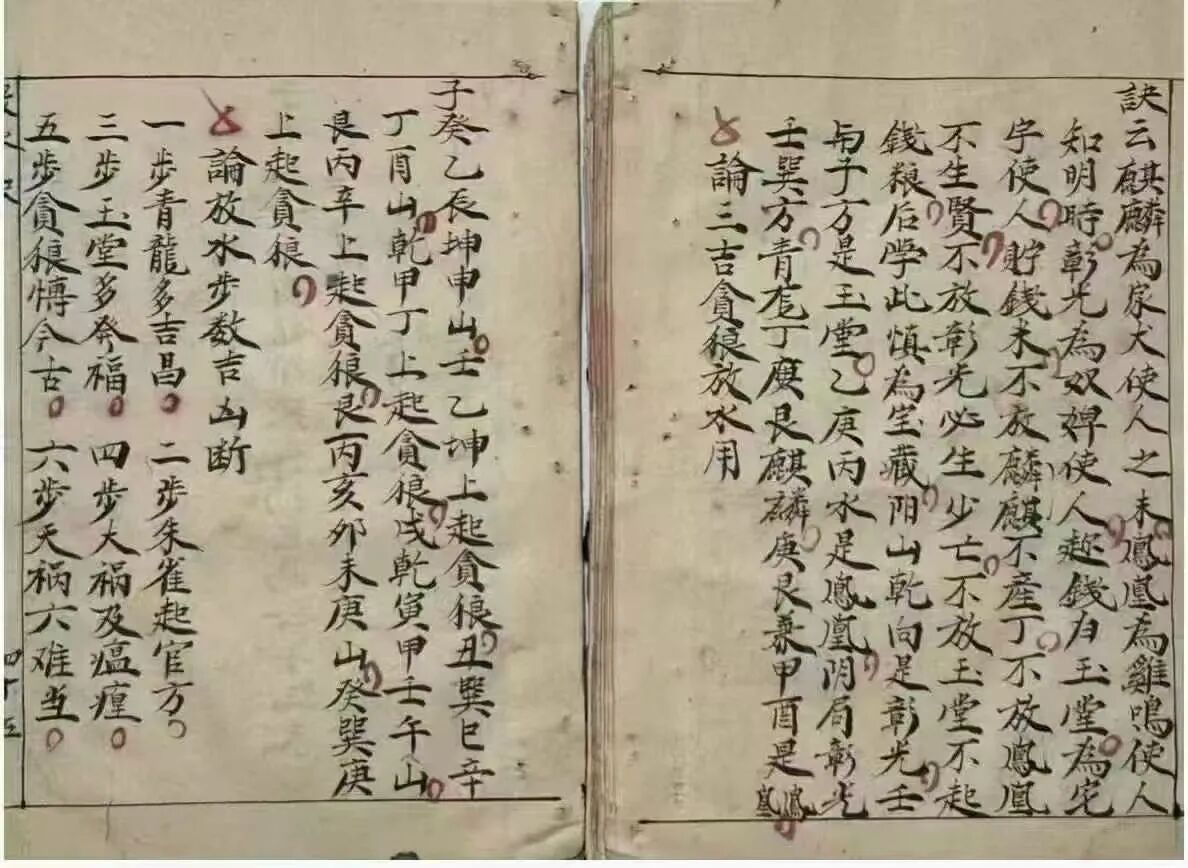 訣云麒麟為家犬使人之来鳳凰為雞鳴使人
知明時彰光為奴婢使人趂錢自玉堂為宅
字使人貯錢米不放麟麒不産丁不放鳳凰
不生賢不放彰光必生少亡不放玉堂不起
錢粮后学此慎為宝藏阳山乾向是彰光壬
丙子方是玉堂乙庚丙水是鳳凰阴局彰光
壬巽方青龙丁庚艮麒麟庚艮乘甲酉是鳳凰
論三吉貪狼放水用
子癸乙辰坤申山壬乙坤上起貪狼丑巽巳辛
丁酉山乾甲丁上起貪狼戌乾寅甲壬午山
艮丙辛上起貪狼艮丙亥卯未庚山癸巽庚
上起貪狼
論放水步数吉凶断
一步青龍多吉昌 二步朱雀起官方
三步玉堂多發福 四步大禍及瘟瘟
五步貪狼慱今古 六步天祸六难当
四十五